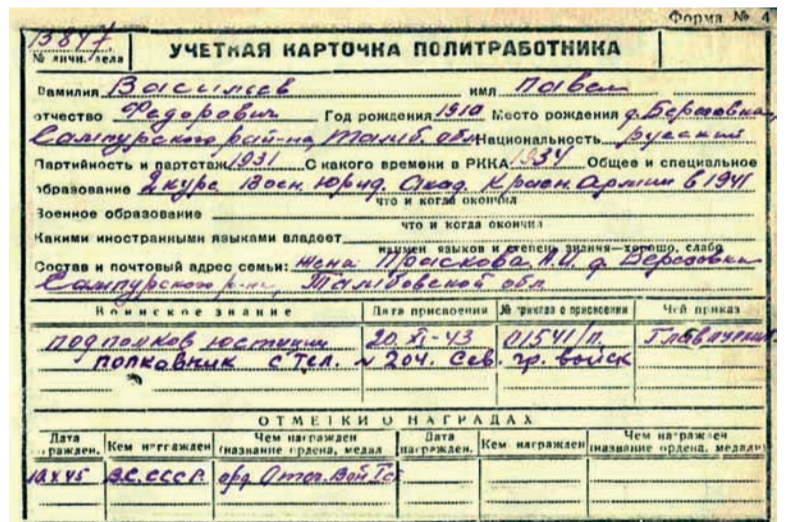 Форма № 4
13847
№ личн. дела
УЧЕТНАЯ КАРТОЧКА ПОЛИТРАБОТНИКА
Фамилия Васильев имя Павел
отчество Федорович Год рождения 1910 Место рождения д. Березовка,
Сампурского рай-на, Тамб. обл. Национальность русский
Партийность и партстаж 1931 С какого времени в РККА 1934 Общее и специальное
образование 2 курс Воен. Юрид. Акад. Красн. Армии в 1941
что и когда окончил
Военное образование
что и когда окончил
Какими иностранными языками владеет
наимен. языков и степень знания—хорошо, слабо
Состав и почтовый адрес семьи: жена Праскова А.И. д. Березовка
Сампурского р-на, Тамбовской обл.
Воинское звание Дата присвоения № приказа о присвоении Чей приказ
подполков юстиции 20.XI-43 01541/п.
полковник с тел. № 204. Сев. гр. войск
ОТМЕТКИ О НАГРАДАХ
Дата награжден. Кем награжден Чем награжден (название ордена, медали) Дата награжден. Кем награжден Чем награжден (название ордена, медали)
В.С. СССР орд. Отеч. Вой